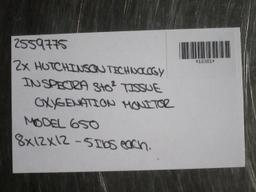 2559775
2x HUTCHINSON TECHNOLOGY
INSPECTRA StO² TISSUE
OXYGENATION MONITOR
MODEL 650
8x12x12 - 5 lbs each.